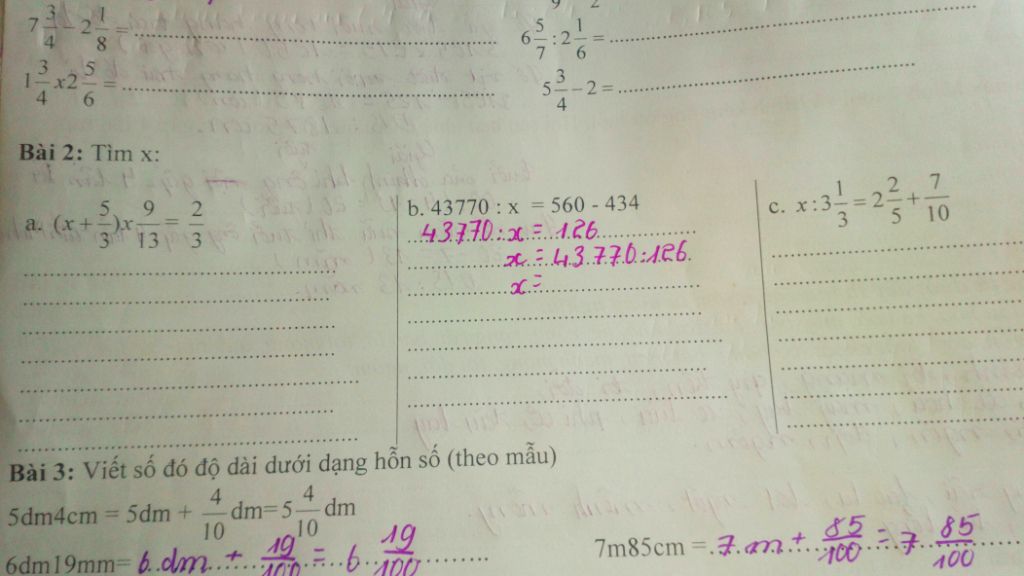 7 3/4 − 2 1/8 = ........ 6 5/7 : 2 1/6 = ........
1 3/4 x 2 5/6 = ........ 5 3/4 − 2 = ........
Bài 2: Tìm x:
a. (x + 5/3) x 9/13 = 2/3
b. 43770 : x = 560 - 434
43770 : x = 126
x = 43770 : 126
x =
c. x : 3 1/3 = 2 2/5 + 7/10
Bài 3: Viết số đó độ dài dưới dạng hỗn số (theo mẫu)
5dm4cm = 5dm + 4/10 dm = 5 4/10 dm
6dm19mm = 6 dm + 19/100 = 6 19/100 7m85cm = 7 m + 85/100 = 7 85/100